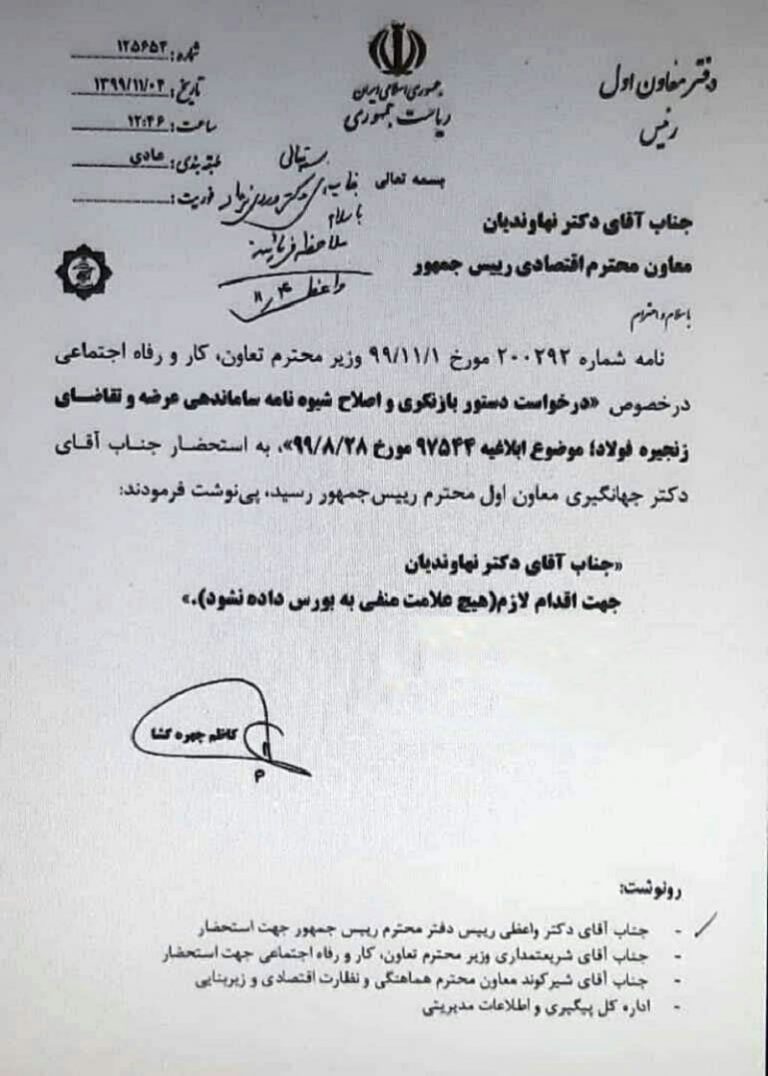 دفتر معاون اول
رئیس
جمهوری اسلامی ایران
ریاست جمهوری
شماره: ۱۲۵۶۵۳
تاریخ: ۱۳۹۹/۱۱/۰۴
ساعت: ۱۲:۴۶
طبقه بندی: عادی
فوریت:
بسمه تعالی
بسمه تعالی
جناب آقای دکتر
با سلام
ملاحظه فرمایید
واعظی ۱۱/۴
جناب آقای دکتر نهاوندیان
معاون محترم اقتصادی رییس جمهور
با سلام و احترام
نامه شماره ۲۰۰۲۹۲ مورخ ۹۹/۱۱/۱ وزیر محترم تعاون، کار و رفاه اجتماعی
درخصوص «درخواست دستور بازنگری و اصلاح شیوه نامه ساماندهی عرضه و تقاضای
زنجیره فولاد؛ موضوع ابلاغیه ۹۷۵۴۴ مورخ ۹۹/۸/۲۸»، به استحضار جناب آقای
دکتر جهانگیری معاون اول محترم رییس‌جمهور رسید، پی‌نوشت فرمودند:
«جناب آقای دکتر نهاوندیان
جهت اقدام لازم(هیچ علامت منفی به بورس داده نشود).»
کاظم چهره کشا
رونوشت:
- جناب آقای دکتر واعظی رییس دفتر محترم رییس جمهور جهت استحضار
- جناب آقای شریعتمداری وزیر محترم تعاون، کار و رفاه اجتماعی جهت استحضار
- جناب آقای شیرکوند معاون محترم هماهنگی و نظارت اقتصادی و زیربنایی
- اداره کل پیگیری و اطلاعات مدیریتی